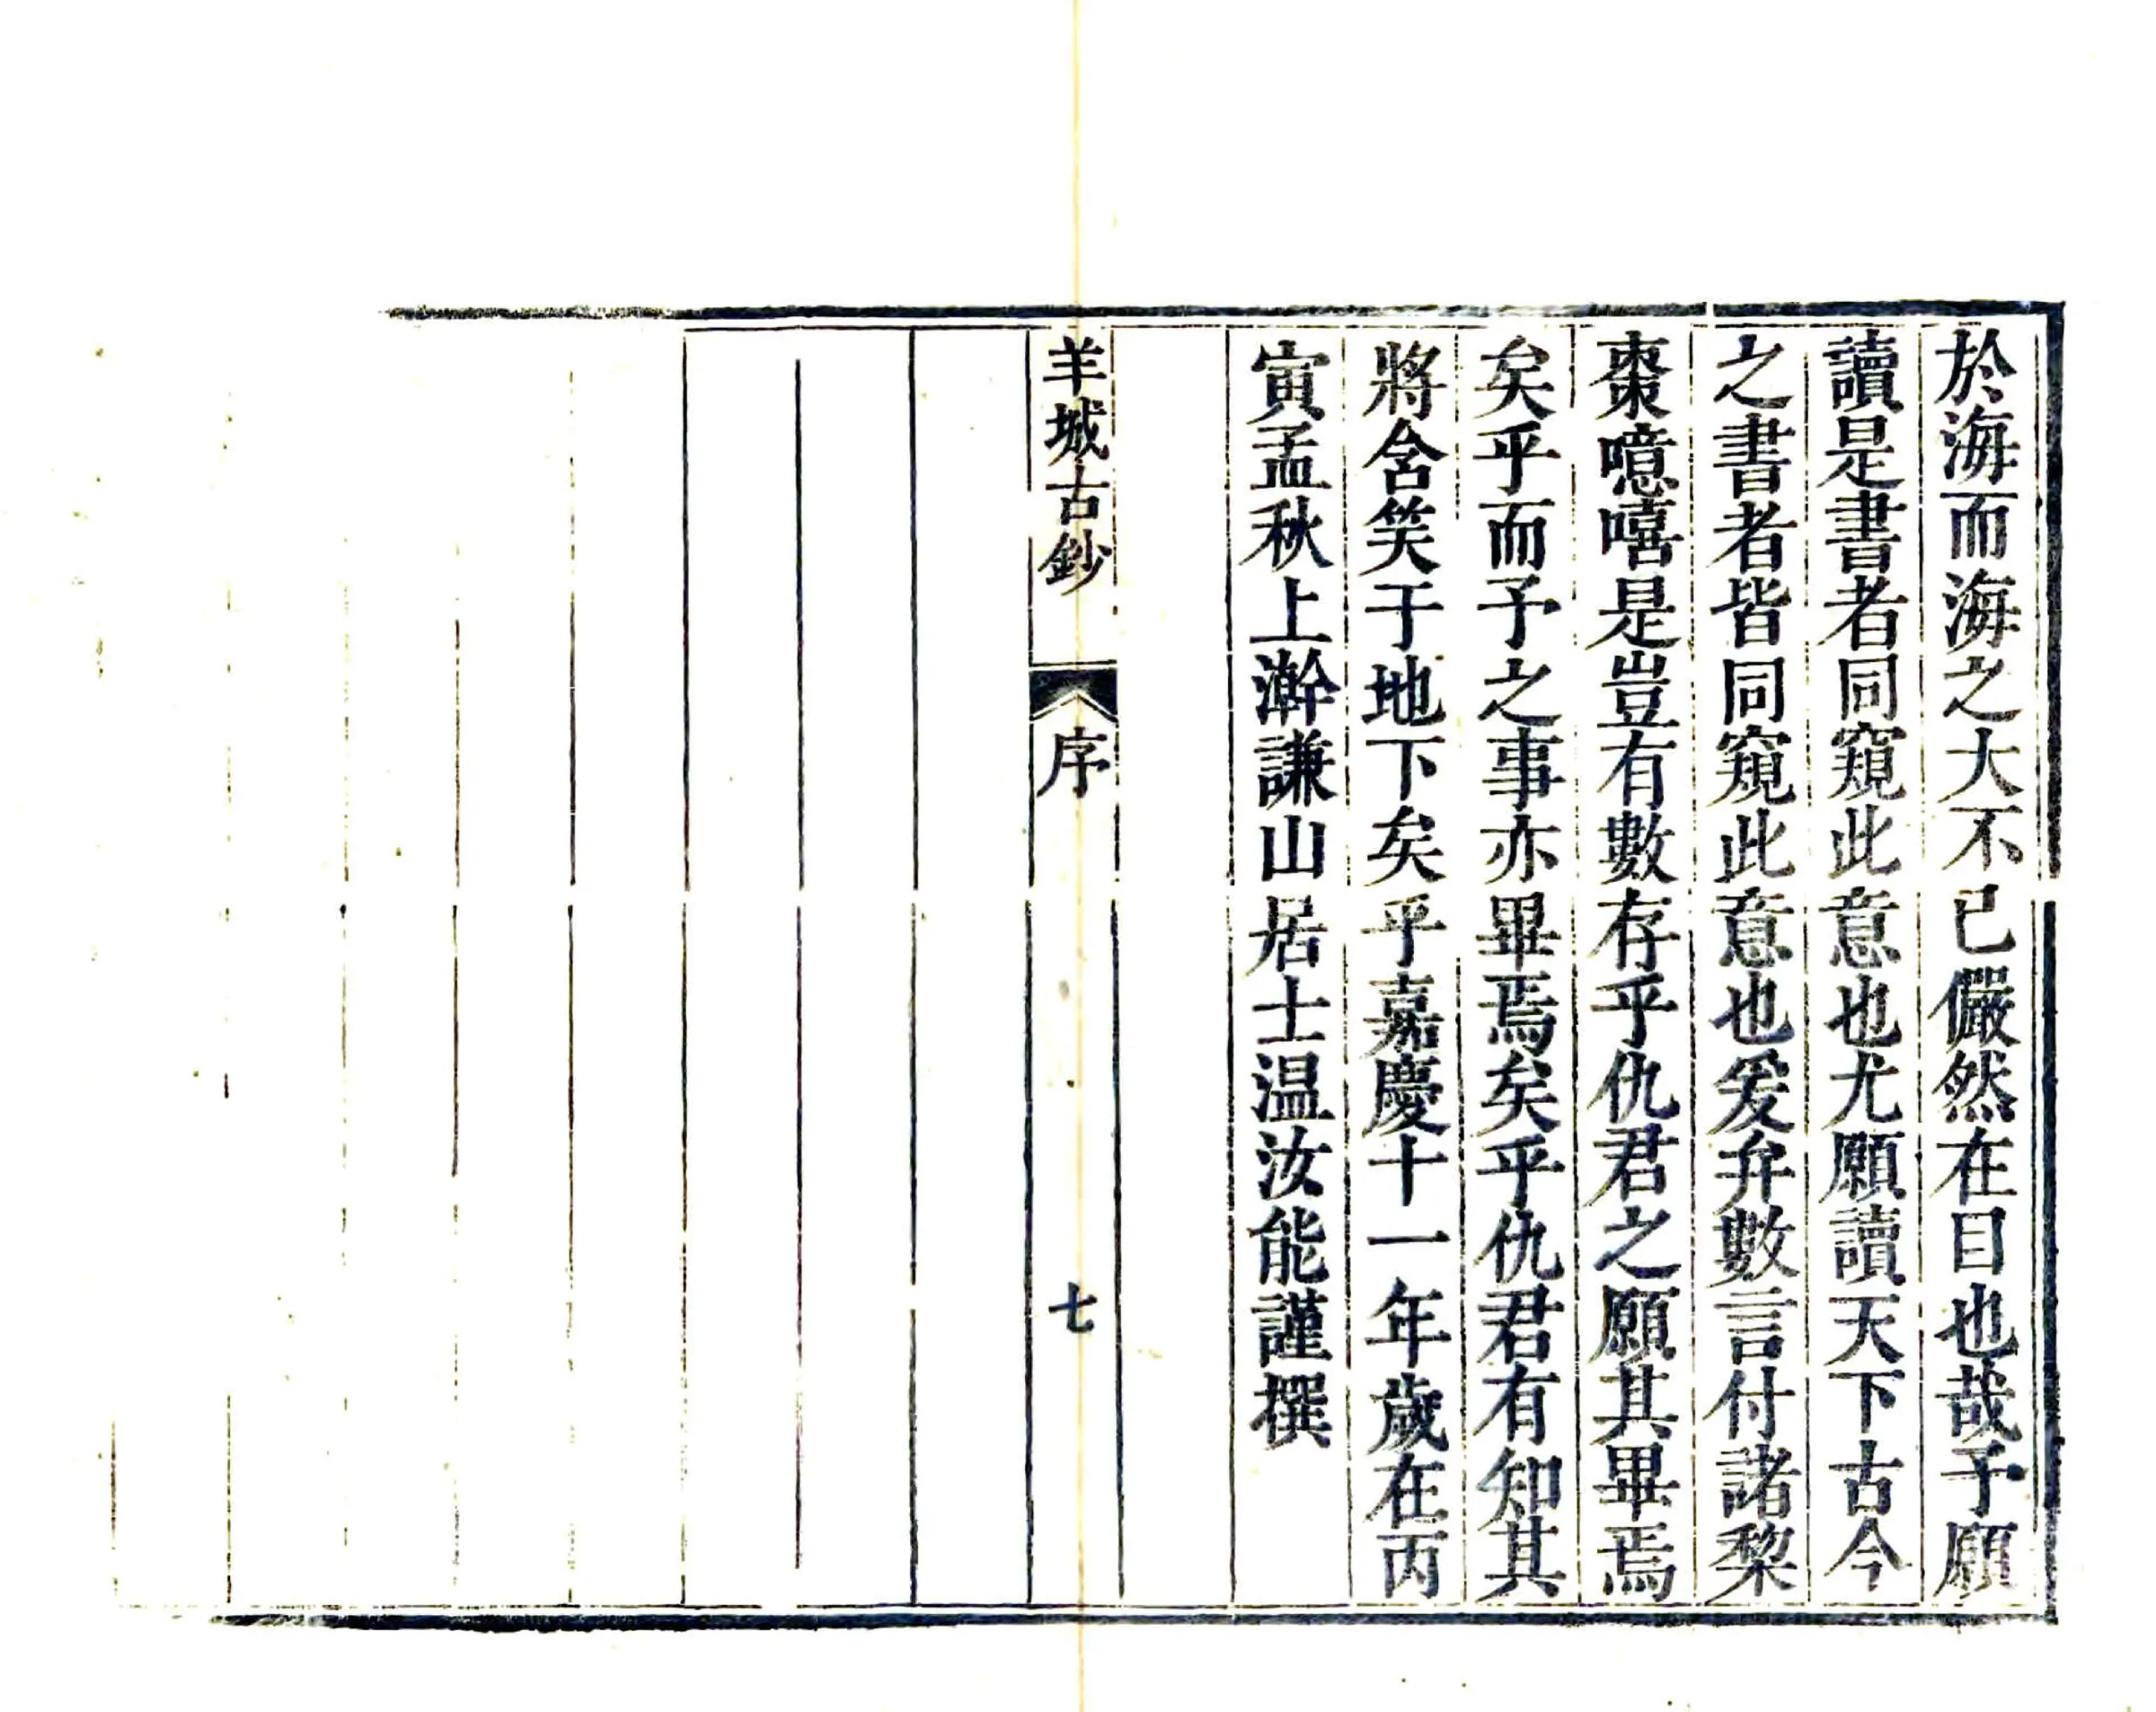 於海而海之大不已儼然在目也哉予願
讀是書者同窺此意也尤願讀天下古今
之書者皆同窺此意也爰弁數言付諸棃
棗噫嘻是豈有數存乎仇君之願其畢焉
矣乎而予之事亦畢焉矣乎仇君有知其
將含笑于地下矣乎嘉慶十一年歲在丙
寅孟秋上澣謙山居士温汝能謹撰
羊城古鈔
序
七